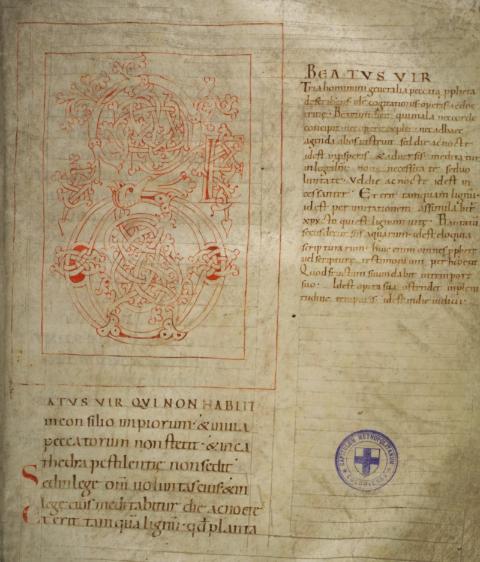 BEATVS VIR
Tria hominum generalia peccata ppheta
describens idest cogitationis operis
concipit nec opere explet nec adhaec
agenda alios instruit sed die ac nocte
idest inpsperis & aduersis meditatur
in lege dni non necessitate sed uo
luntate Vel die ac nocte idest in
cessanter Et erit tamquam lignu
idest per imitationem assimilabit
xpo
secus decursus aquarum idest eloquia
scripturarum huic enim omnes pphete
uel scripture testimonium perhibent
Quod fructum suum dabit in tempore
suo Idest opera sua ostendet in pleni
tudine temporis idest in die iudicii
ATVS VIR QVI NON HABIIT
in consilio impiorum & in uia
peccatorum non stetit & in ca
thedra pestilentie non sedit
Sed in lege dni uoluntas eius & in
lege eius meditabitur die ac nocte
Et erit tamqua lignu qd planta